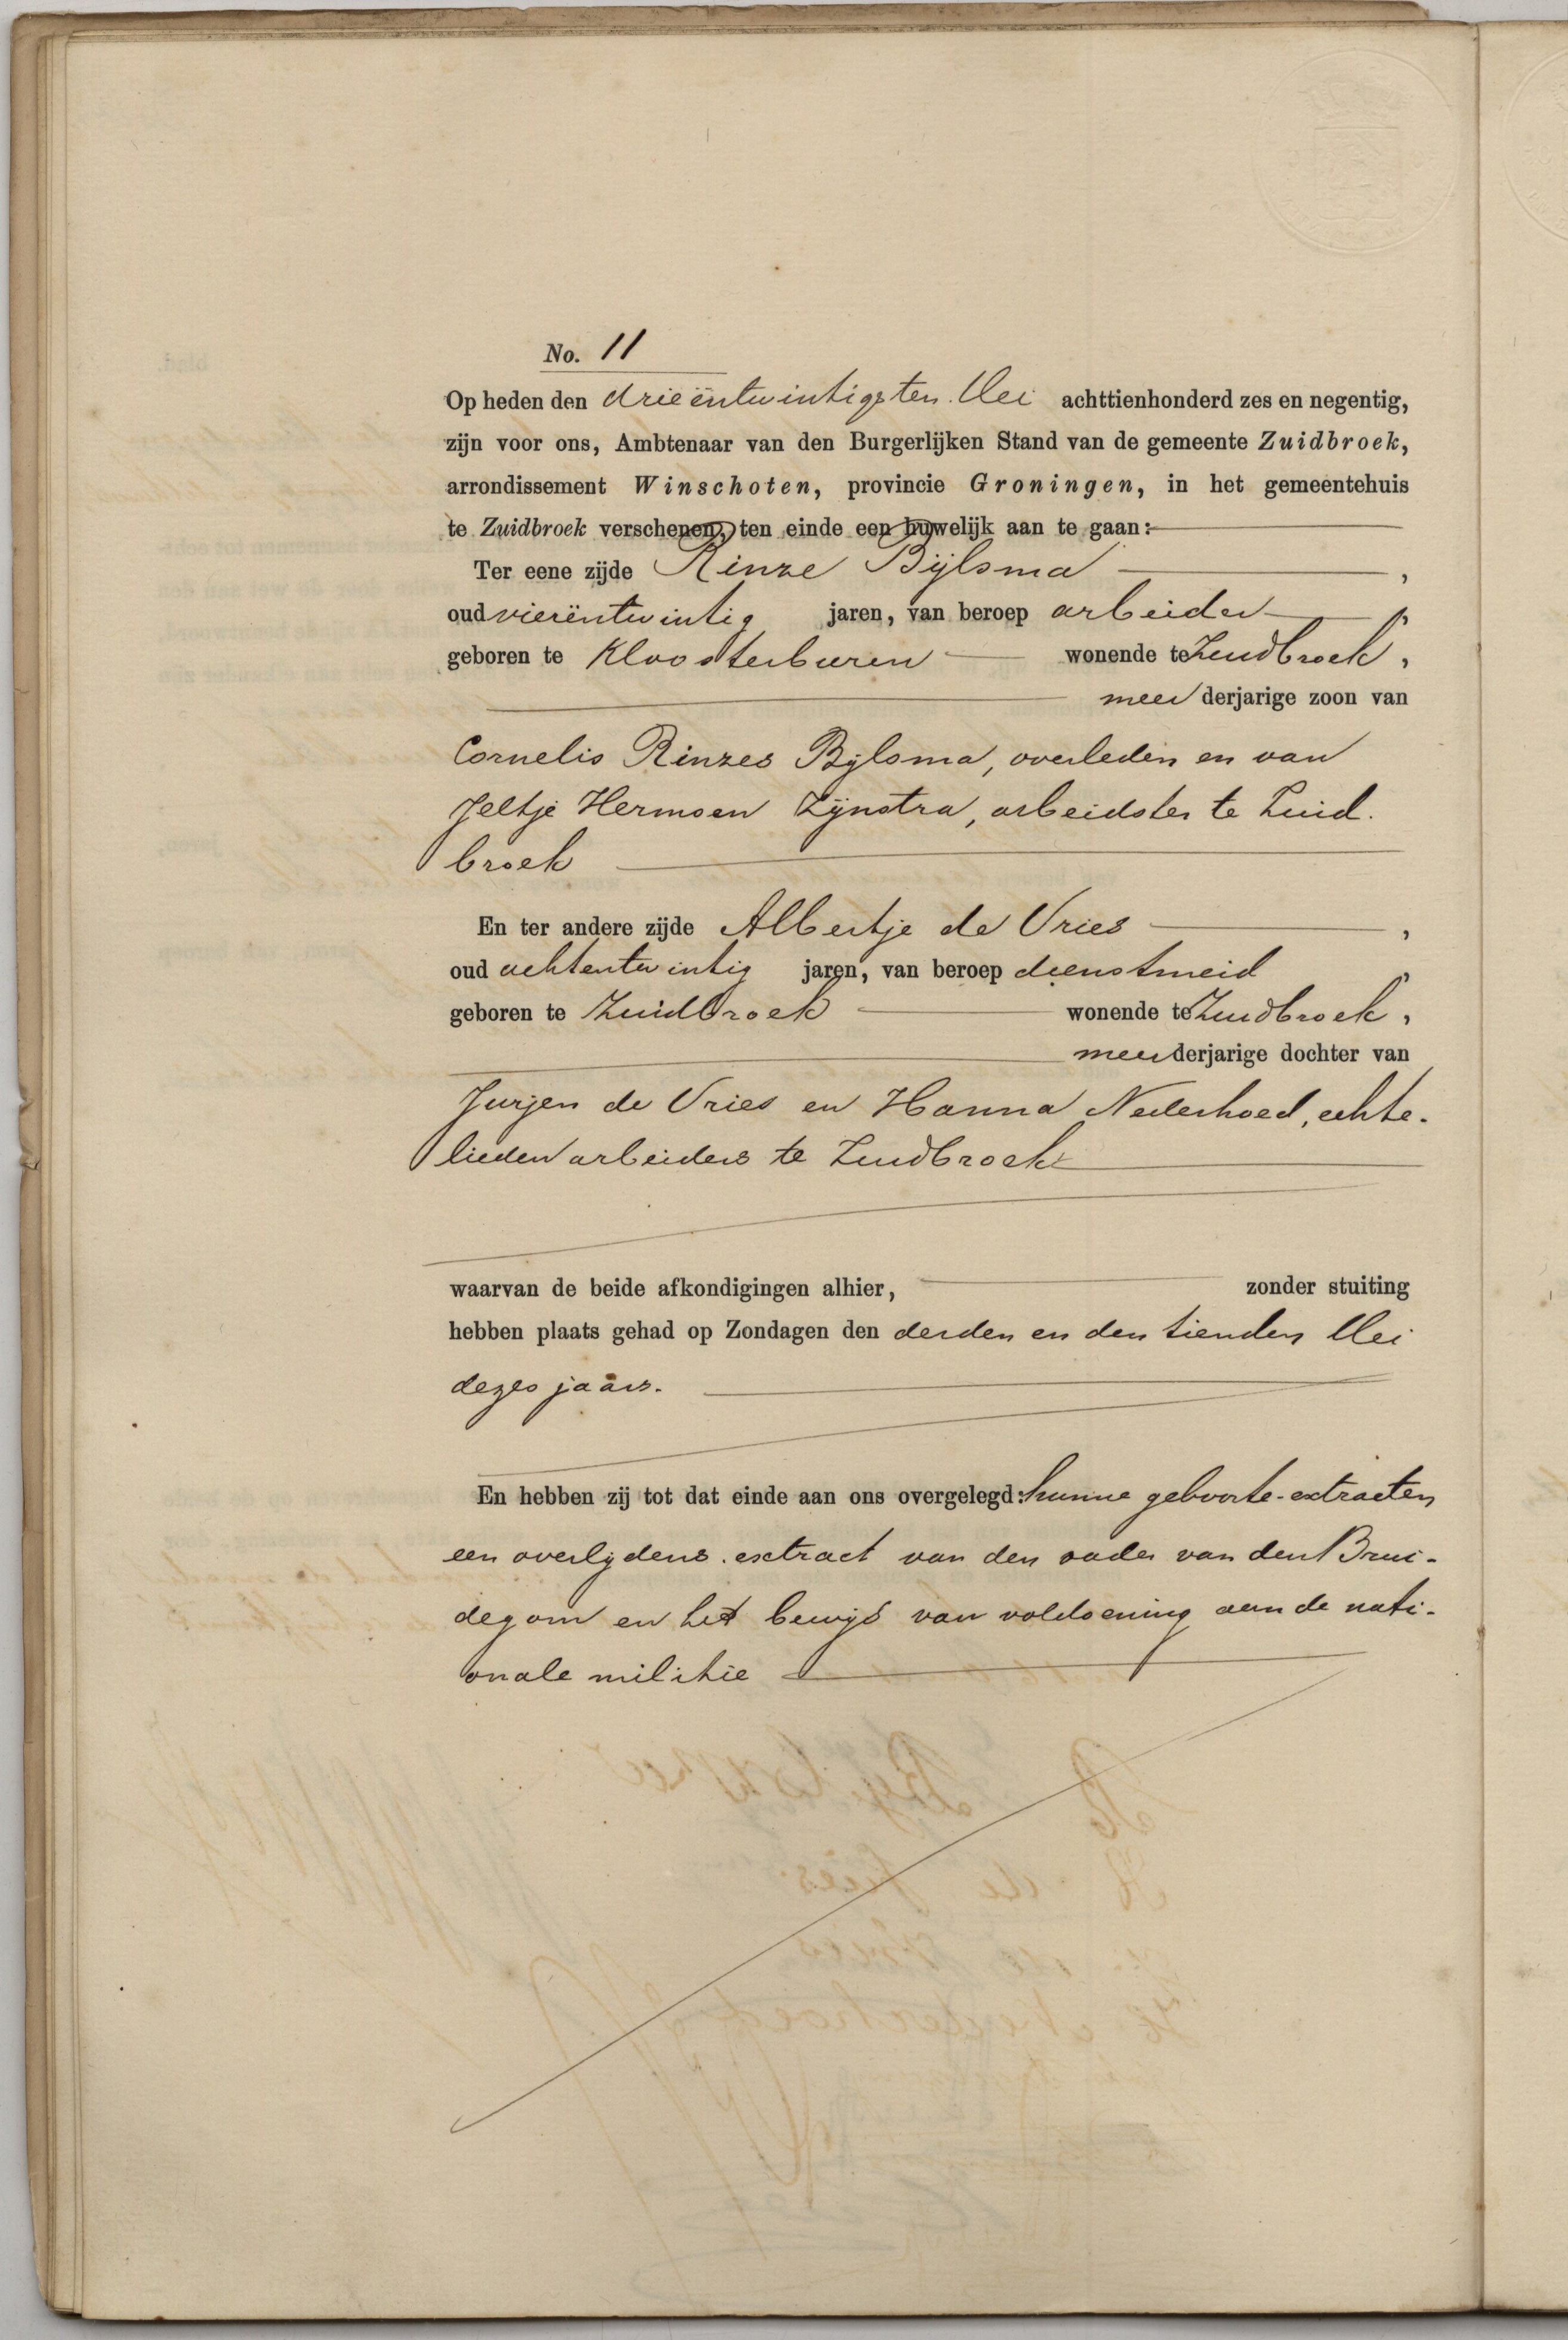 No. 11
Op heden den drieëntwintigsten Mei achttienhonderd zes en negentig,
zijn voor ons, Ambtenaar van den Burgerlijken Stand van de gemeente Zuidbroek,
arrondissement Winschoten, provincie Groningen, in het gemeentehuis
te Zuidbroek verschenen, ten einde een huwelijk aan te gaan:
Ter eene zijde Rinze Bijlsma,
oud vierëntwintig jaren, van beroep arbeider,
geboren te Kloosterburen wonende te Zuidbroek,
meerderjarige zoon van
Cornelis Rinzes Bijlsma, overleden en van
Jeltje Hermsen Zijnstra, arbeidster te Zuid-
broek
En ter andere zijde Albertje de Vries,
oud achtentwintig jaren, van beroep dienstmeid,
geboren te Zuidbroek wonende te Zuidbroek,
meerderjarige dochter van
Jurjen de Vries en Hanna Nederhoed, echte-
lieden arbeiders te Zuidbroek
waarvan de beide afkondigingen alhier, zonder stuiting
hebben plaats gehad op Zondagen den derden en den tienden Mei
dezes jaars.
En hebben zij tot dat einde aan ons overgelegd: hunne geboorte-extracten
een overlijdens-extract van den vader van den Brui-
degom en het bewijs van voldoening aan de nati-
onale militie